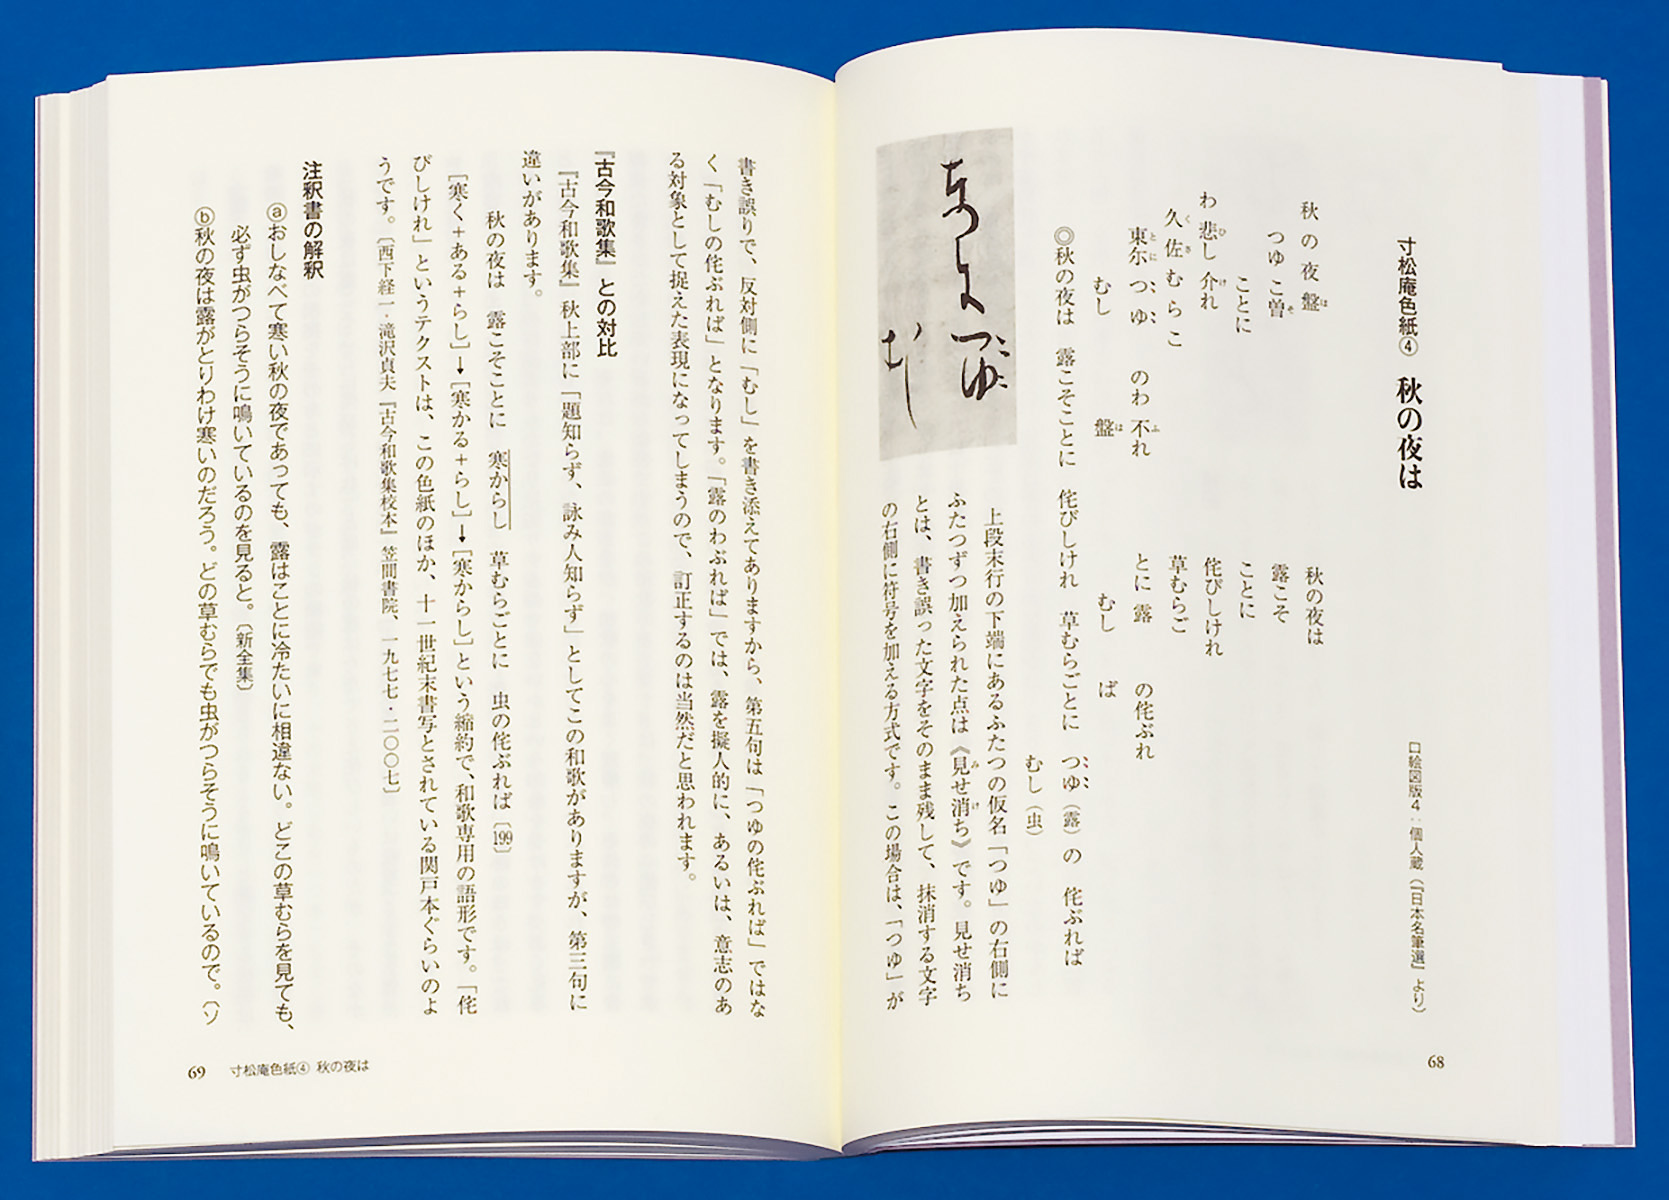 寸松庵色紙④ 秋の夜は
口絵図版4：個人蔵（『日本名筆選』より）
秋の夜盤
つゆこ曽
ことに
わ悲し介れ
久佐むらこ
東尓つゆ のわ不れ
むし 盤
秋の夜は
露こそ
ことに
侘びしけれ
草むらご
とに露 の侘ぶれ
むし ば
◎秋の夜は 露こそことに 侘びしけれ 草むらごとに つゆ（露）の 侘ぶれば
むし（虫）
上段末行の下端にあるふたつの仮名「つゆ」の右側に
ふたつずつ加えられた点は《見せ消ち》です。見せ消ち
とは、書き誤った文字をそのまま残して、抹消する文字
の右側に符号を加える方式です。この場合は、「つゆ」が
68
書き誤りで、反対側に「むし」を書き添えてありますから、第五句は「つゆの侘ぶれば」ではな
く「むしの侘ぶれば」となります。「露のわぶれば」では、露を擬人的に、あるいは、意志のあ
る対象として捉えた表現になってしまうので、訂正するのは当然だと思われます。
『古今和歌集』との対比
『古今和歌集』秋上部に「題知らず、詠み人知らず」としてこの和歌がありますが、第三句に
違いがあります。
秋の夜は 露こそことに 寒からし 草むらごとに 虫の侘ぶれば〔199〕
［寒く＋ある＋らし］→［寒かる＋らし］→［寒からし］という縮約で、和歌専用の語形です。「侘
びしけれ」というテクストは、この色紙のほか、十一世紀末書写とされている関戸本ぐらいのよ
うです。〔西下経一・滝沢貞夫『古今和歌集校本』笠間書院、一九七七・二〇〇七〕
注釈書の解釈
ⓐおしなべて寒い秋の夜であっても、露はことに冷たいに相違ない。どこの草むらを見ても、
必ず虫がつらそうに鳴いているのを見ると。〔新全集〕
ⓑ秋の夜は露がとりわけ寒いのだろう。どの草むらでも虫がつらそうに鳴いているので。〔ソ
69 寸松庵色紙④ 秋の夜は